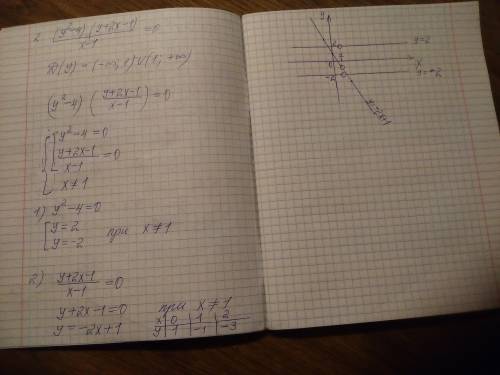 2. (y²-4)(y+2x-1)/(x-1) =0
D(y)=(-∞; 1)∪(1; +∞)
(y²-4) ((y+2x-1)/(x-1))=0
{ [ y²-4=0
(y+2x-1)/(x-1) =0
x≠1
1) y²-4=0
[ y=2
y=-2 при x≠1
2) (y+2x-1)/(x-1) =0
y+2x-1=0 при x≠1
y=-2x+1
x 0 1 2
y 1 -1 -3
y
y=2
2
1
x
0
-2
y=-2
y=-2x+1